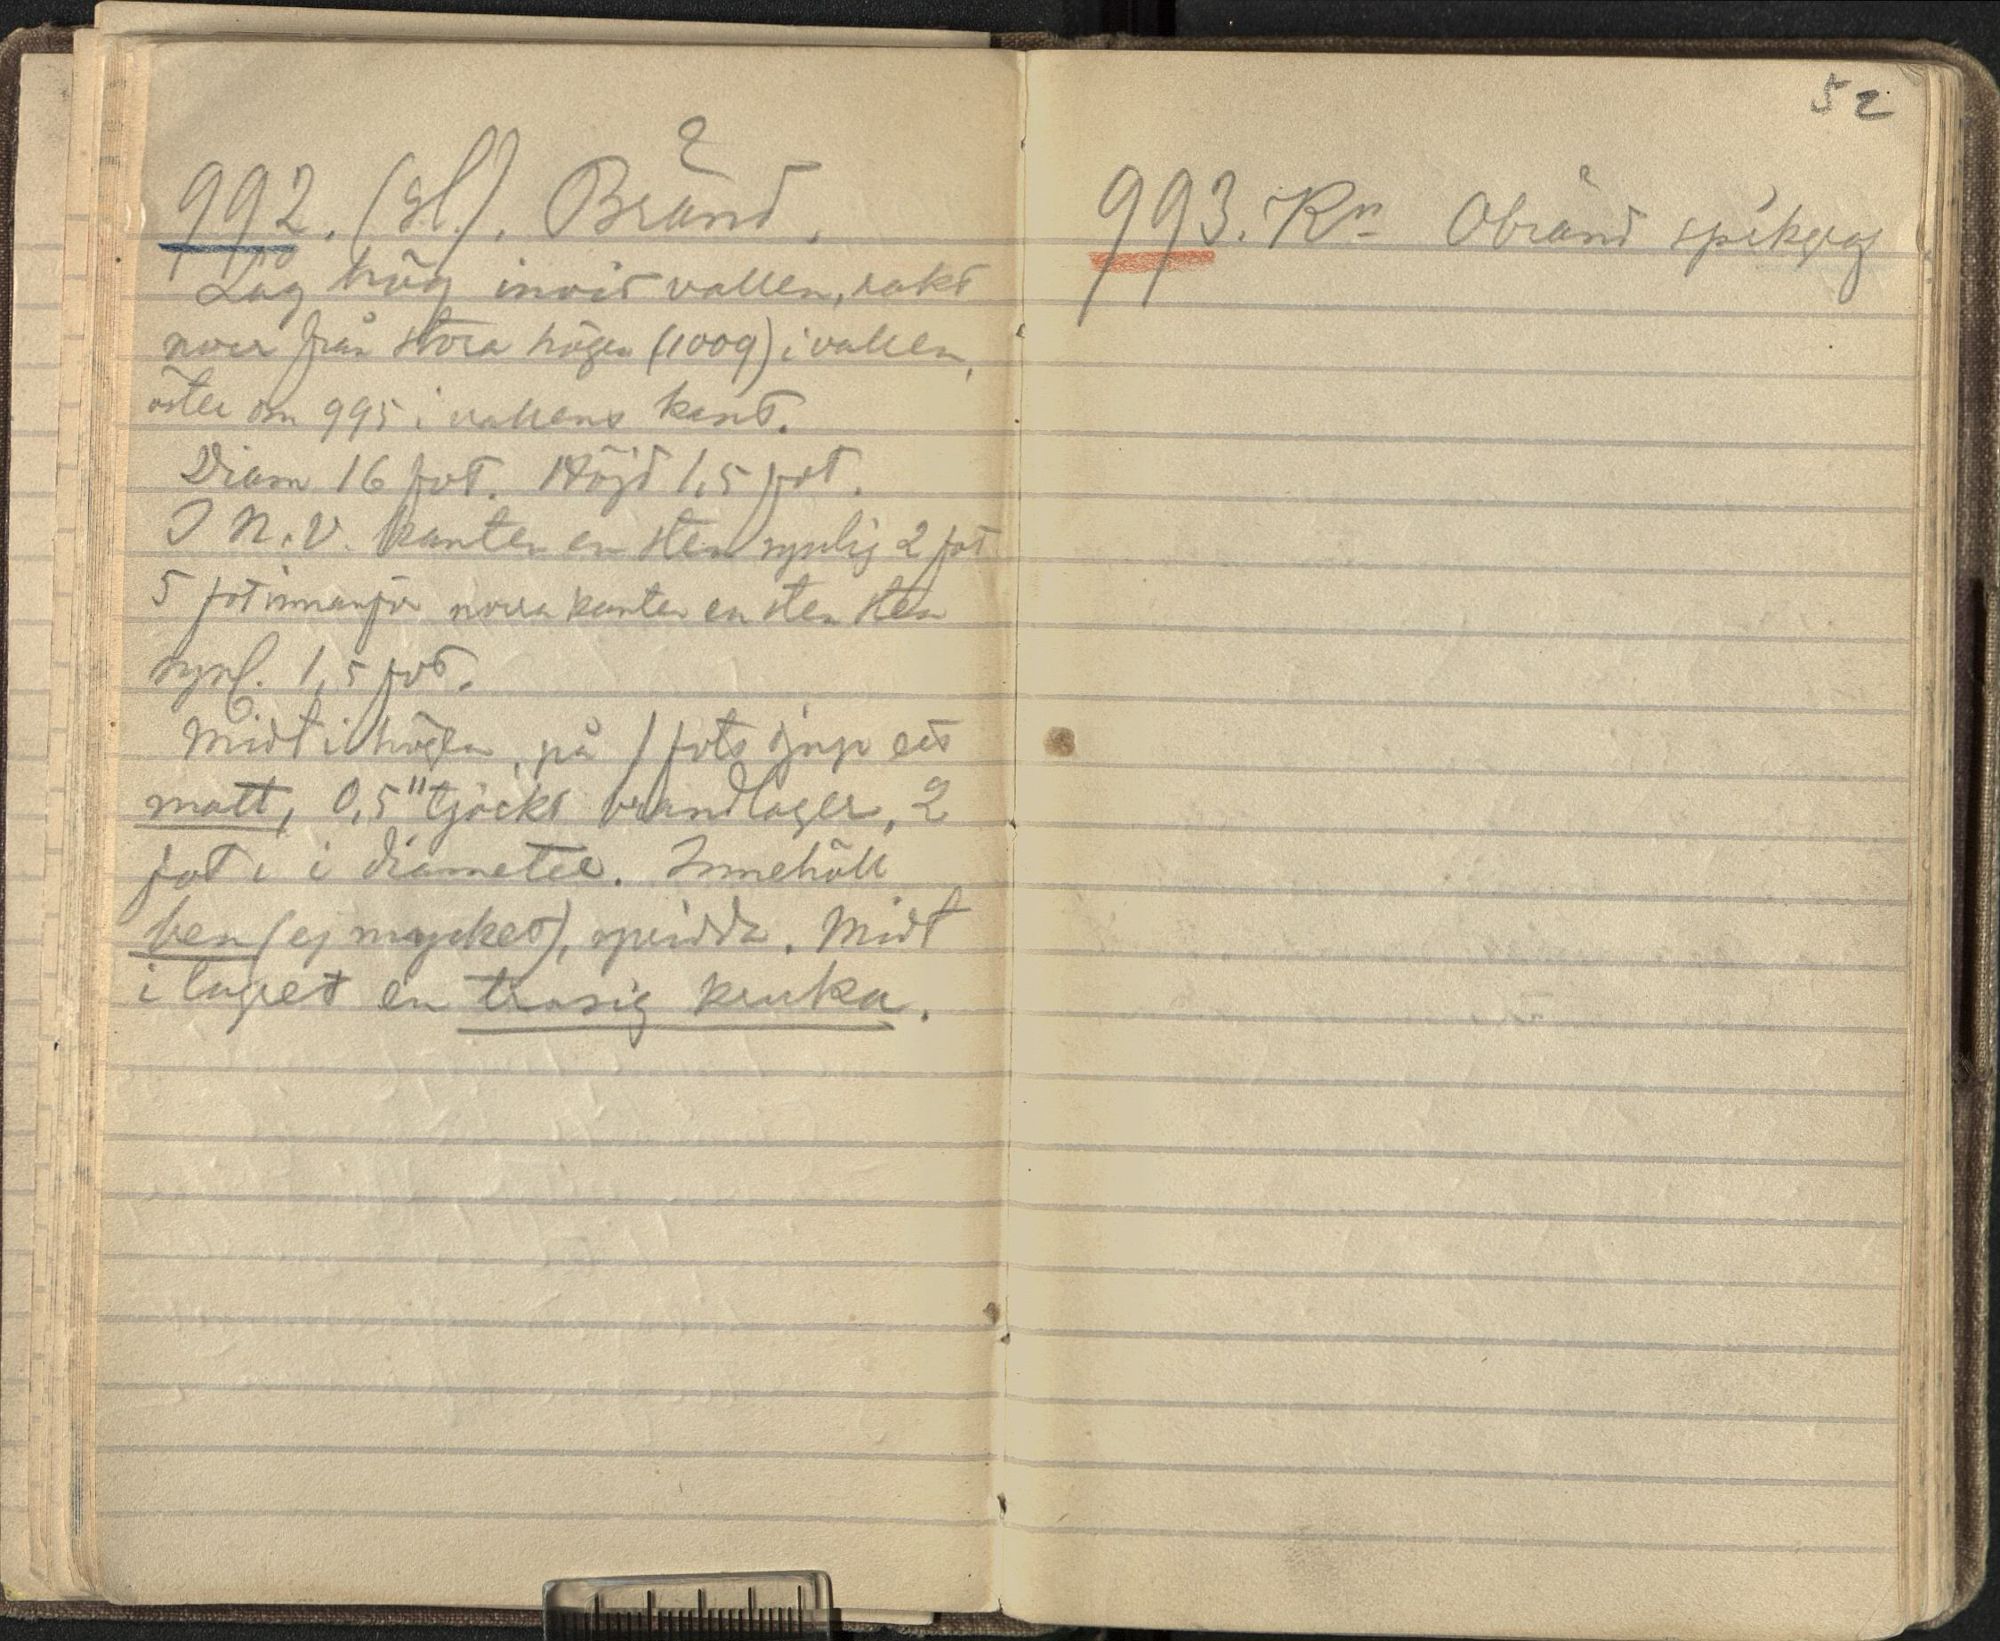 992. (Hl.). Bränd.
Låg hög invid vallen, rakt
norr från stora högen (1009) i vallen,
öster om 995 i vallens kant.
Diam 16 fot. Höjd 1,5 fot.
I N.V. kanten en sten synlig 2 fot
5 fot innanför norra kanten en sten sten
synl. 1,5 fot.
Midt i högen, på 1 fots djup ett
matt, 0,5" tjockt brandlager, 2
fot i i diameter. Innehöll
ben (ej mycket), spridda. Midt
i lagret en trasig kruka.
52
993. Kn Obränd spikgraf